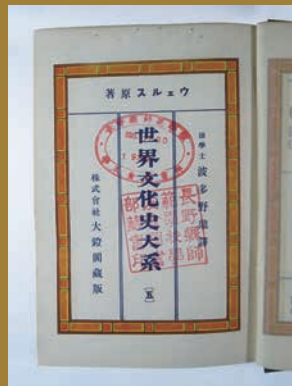 ウェルス原著
法學士 波多野鼎譯
世界文化史大系
〔五〕
株式會社 大鐙閣藏版
長野縣師
範學校學
部藏書印